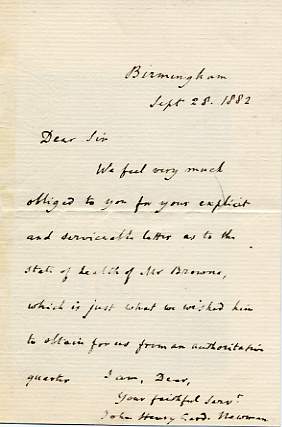 Birmingham
Sept 28. 1882
Dear Sir
We feel very much
obliged to you for your explicit
and serviceable letter as to the
state of health of Mr Browne,
which is just what we wished him
to obtain for us from an authoritative
quarter I am, Dear,
Your faithful Servt
John Henry Card. Newman